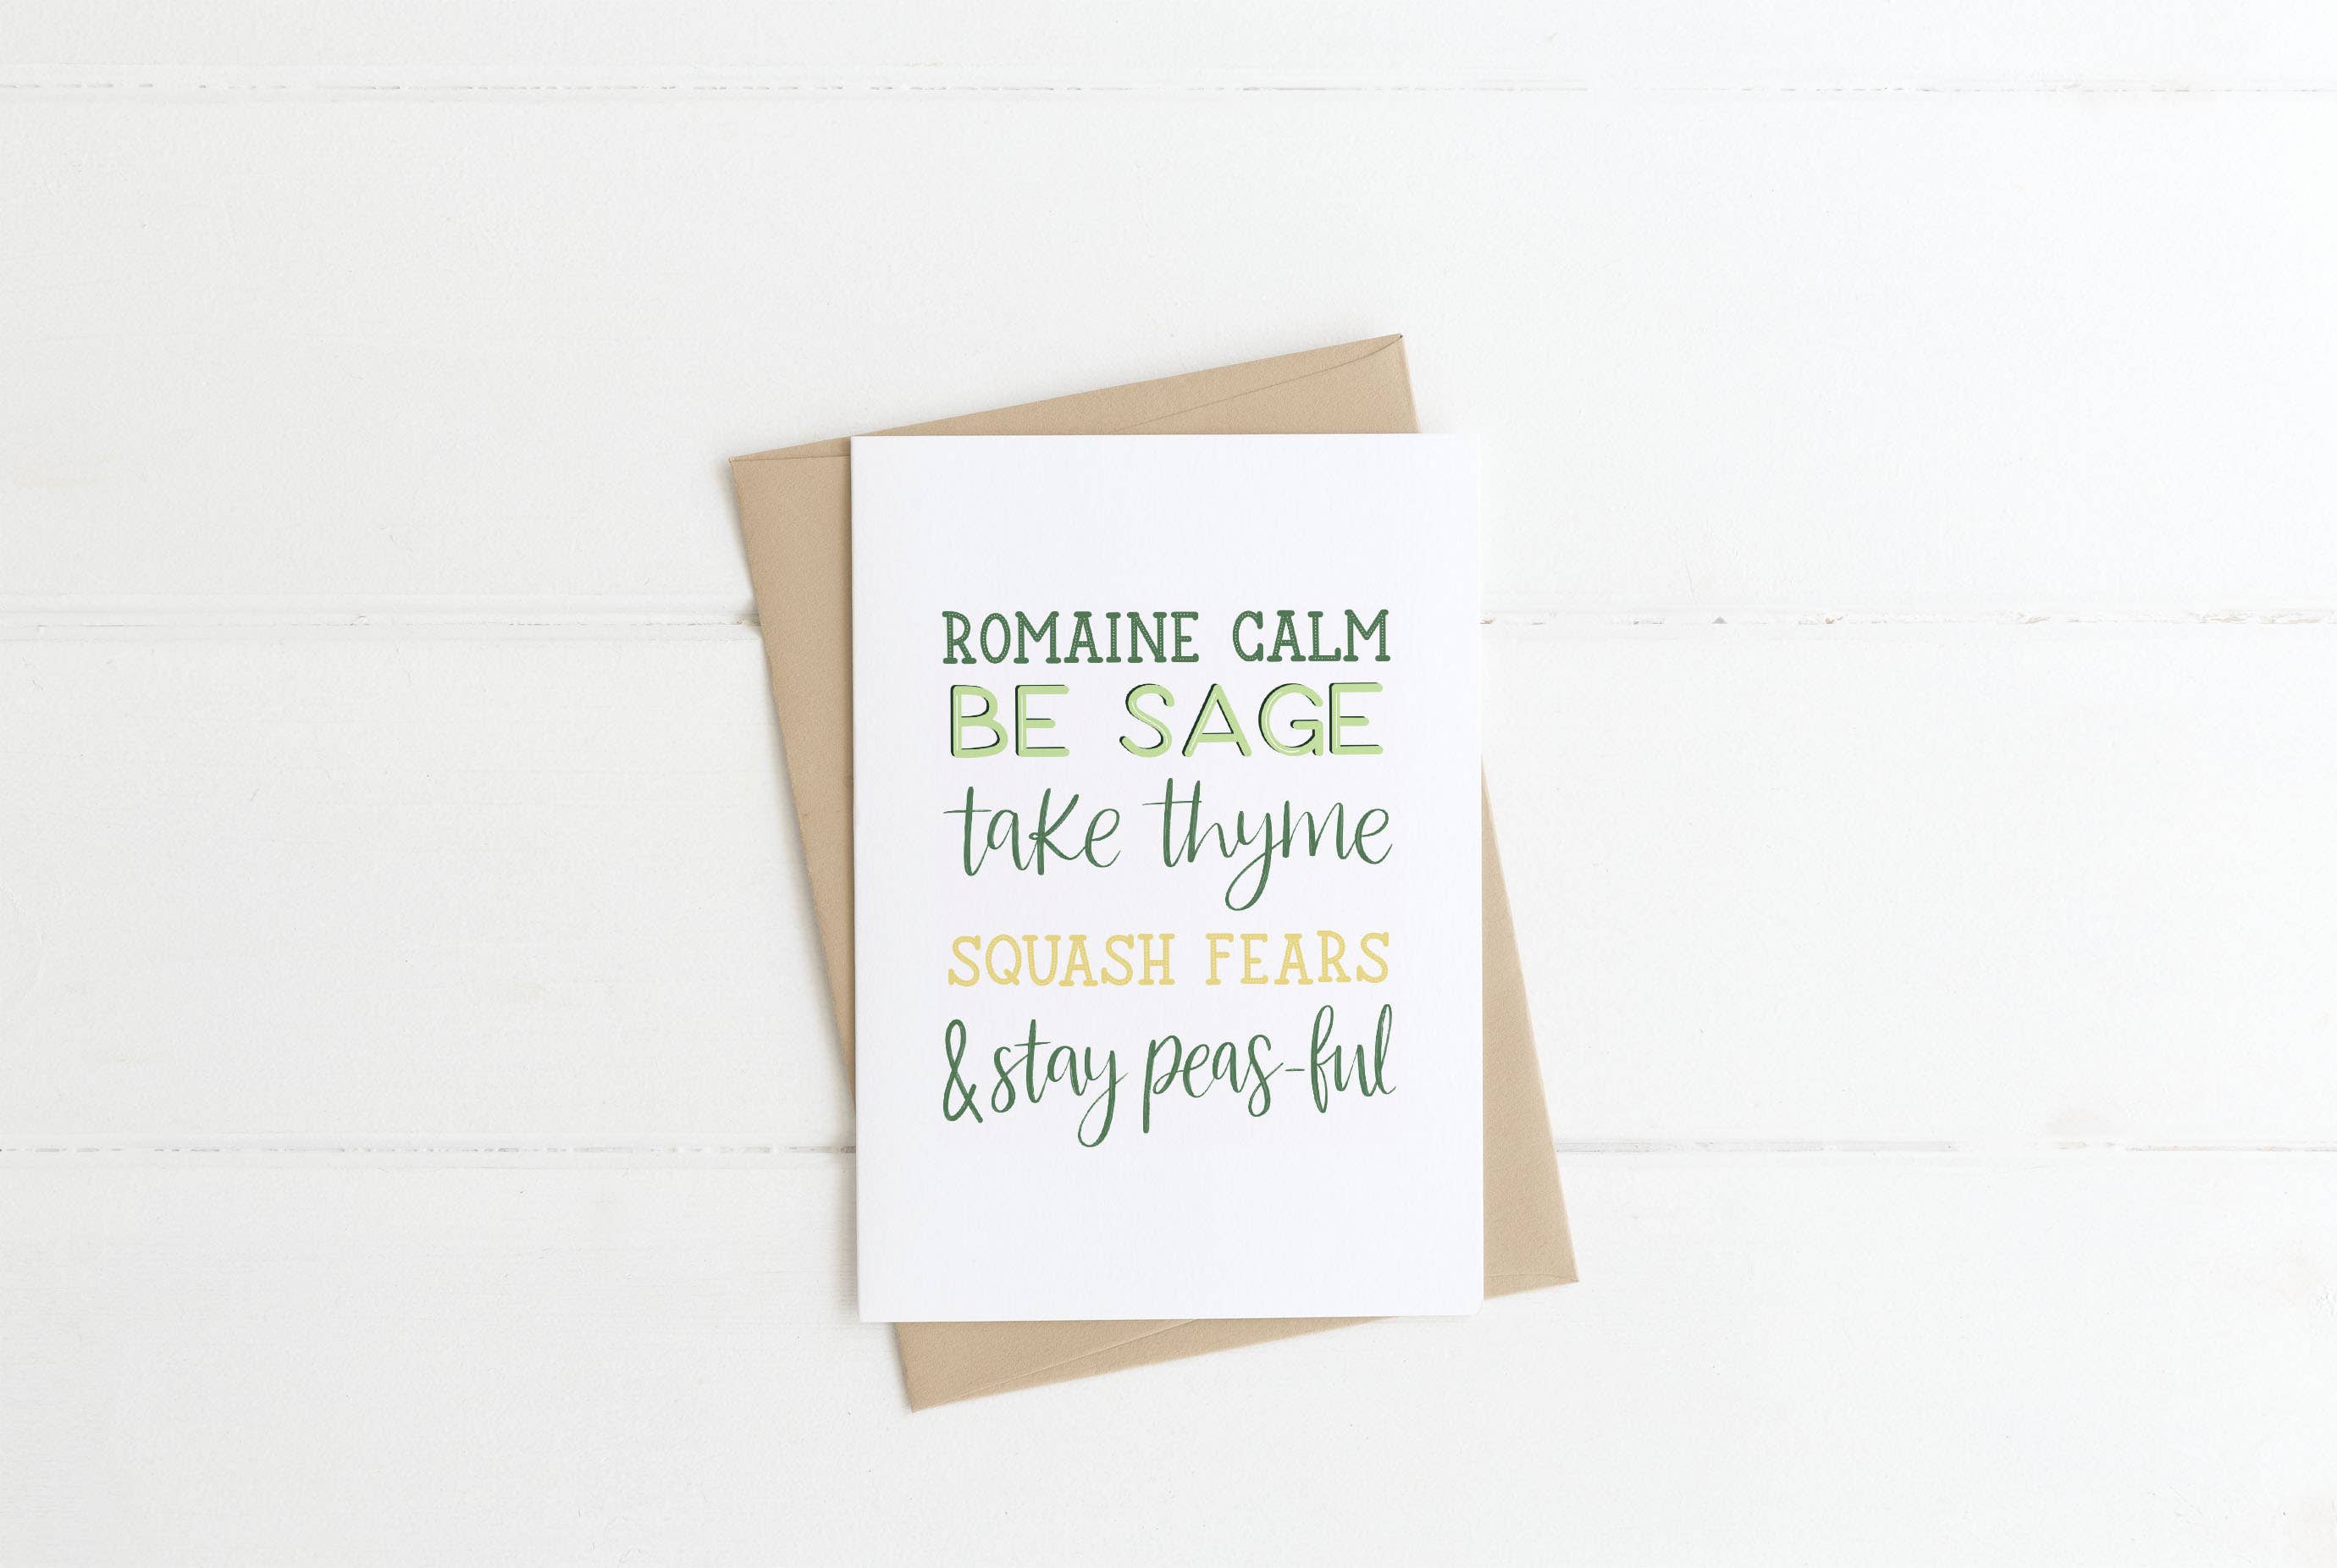 ROMAINE CALM
BE SAGE
take thyme
SQUASH FEARS
& stay peas-ful